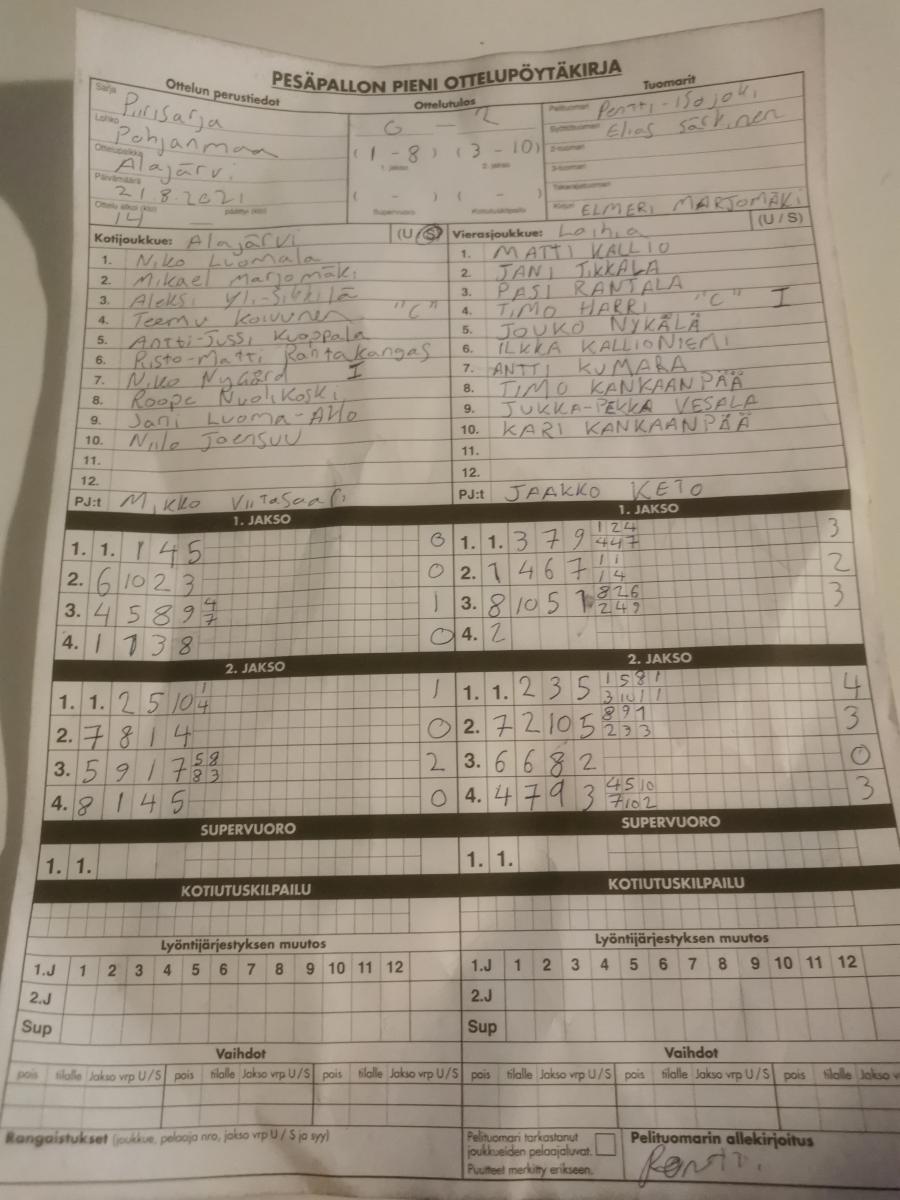 PESÄPALLON PIENI OTTELUPÖYTÄKIRJA
Ottelun perustiedot
Ottelutulos
Tuomarit
Sarja Piirisarja
Lohko Pohjanmaa
Ottelupaikka Alajärvi
Päivämäärä 21.8.2021
Ottelu alkoi (klo) 14 päättyi (klo)
0 - 2
(1 - 8) (3 - 10)
1. jakso 2. jakso
( - ) ( - )
Supervuoro Kotiutuskilpailu
Pelituomari Pentti Isojoki
Syöttötuomari Elias Särkinen
2-tuomari
3-tuomari
Takarajatuomari
Kirjuri ELMERI MARJOMÄKI
Kotijoukkue: Alajärvi (U/S)
1. Niko Luomala
2. Mikael Marjomäki
3. Aleksi Yli-Sikkilä
4. Teemu Koivunen "C"
5. Antti-Jussi Kuoppala
6. Risto-Matti Rantakangas
7. Niko Nygård I
8. Roope Nuolikoski
9. Jani Luoma-Aho
10. Niilo Joensuu
11.
12.
PJ:t Mikko Viitasaari
Vierasjoukkue: Laihia (U/S)
1. MATTI KALLIO
2. JANI TIKKALA
3. PASI RANTALA
4. TIMO HARRI "C" I
5. JOUKO NYKÄLÄ
6. ILKKA KALLIONIEMI
7. ANTTI KUMARA
8. TIMO KANKAANPÄÄ
9. JUKKA-PEKKA VESALA
10. KARI KANKAANPÄÄ
11.
12.
PJ:t JAAKKO KETO
1. JAKSO
1. 1. 1 4 5 0
2. 6 10 2 3 0
3. 4 5 8 9 4 1
7
4. 1 7 3 8 0
2. JAKSO
1. 1. 2 5 10 1 1
4
2. 7 8 1 4 0
3. 5 9 1 7 5 8 2
8 3
4. 8 1 4 5 0
SUPERVUORO
1. 1.
KOTIUTUSKILPAILU
1. JAKSO
1. 1. 3 7 9 1 2 4 3
4 4 7
2. 1 4 6 7 1 1 2
1 4
3. 8 10 5 1 8 2 6 3
2 4 9
4. 2
2. JAKSO
1. 1. 2 3 5 1 5 8 1 4
3 10 1 1
2. 7 2 10 5 8 9 1 3
2 3 3
3. 6 6 8 2 0
4. 4 7 9 3 4 5 10 3
7 10 2
SUPERVUORO
1. 1.
KOTIUTUSKILPAILU
Lyöntijärjestyksen muutos
1.J 1 2 3 4 5 6 7 8 9 10 11 12
2.J
Sup
Lyöntijärjestyksen muutos
1.J 1 2 3 4 5 6 7 8 9 10 11 12
2.J
Sup
Vaihdot
pois tilalle Jakso vrp U/S pois tilalle Jakso vrp U/S pois tilalle Jakso vrp U/S
Vaihdot
pois tilalle Jakso vrp U/S pois tilalle Jakso vrp U/S pois tilalle Jakso v
Rangaistukset (joukkue, pelaaja nro, jakso vrp U / S ja syy)
Pelituomari tarkastanut
joukkueiden pelaajaluvat.
Puutteet merkitty erikseen.
Pelituomarin allekirjoitus